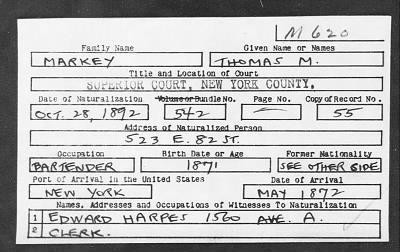 M 620
Family Name Given Name or Names
MARKEY THOMAS M.
Title and Location of Court
SUPERIOR COURT, NEW YORK COUNTY,
Date of Naturalization Volume or Bundle No. Page No. Copy of Record No.
OCT. 28, 1892 542 — 55
Address of Naturalized Person
523 E. 82 ST.
Occupation Birth Date or Age Former Nationality
BARTENDER 1871 SEE OTHER SIDE
Port of Arrival in the United States Date of Arrival
NEW YORK MAY 1872
Names, Addresses and Occupations of Witnesses To Naturalization
1 EDWARD HARPES 1560 AVE. A.
2 CLERK.